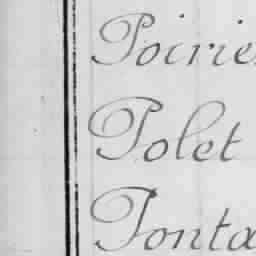 Poirie
Polet
Ponta